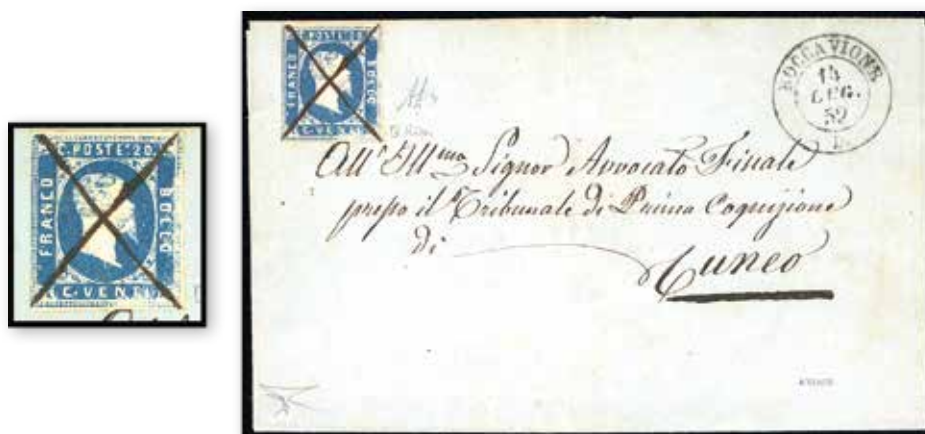 C. POSTE. 20.
FRANCO
BOLLO
C. VENTI
C. POSTE. 20.
FRANCO
BOLLO
C. VENTI
ROCCAVIONE
14
LUG.
52
All' Ill.mo Signor Avvocato Fiscale
presso il Tribunale di Prima Cognizione
di
Cuneo